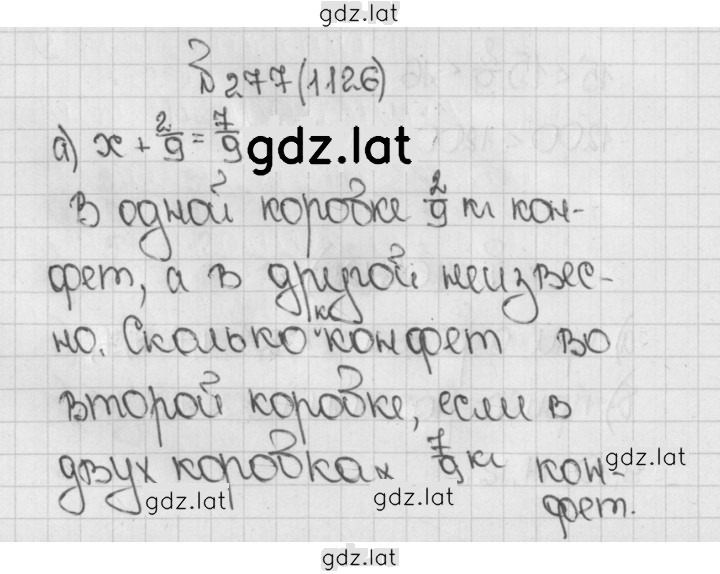 gdz.lat
№ 277(1126)
а) x + 2/9 = 7/9 gdz.lat
В одной коробке 2/9 кг кон-
фет, а в другой неизвес-
но. Сколько кг конфет во
второй коробке, если в
двух коробках 7/9 кг кон- gdz.lat
gdz.lat gdz.lat фет.
gdz.lat